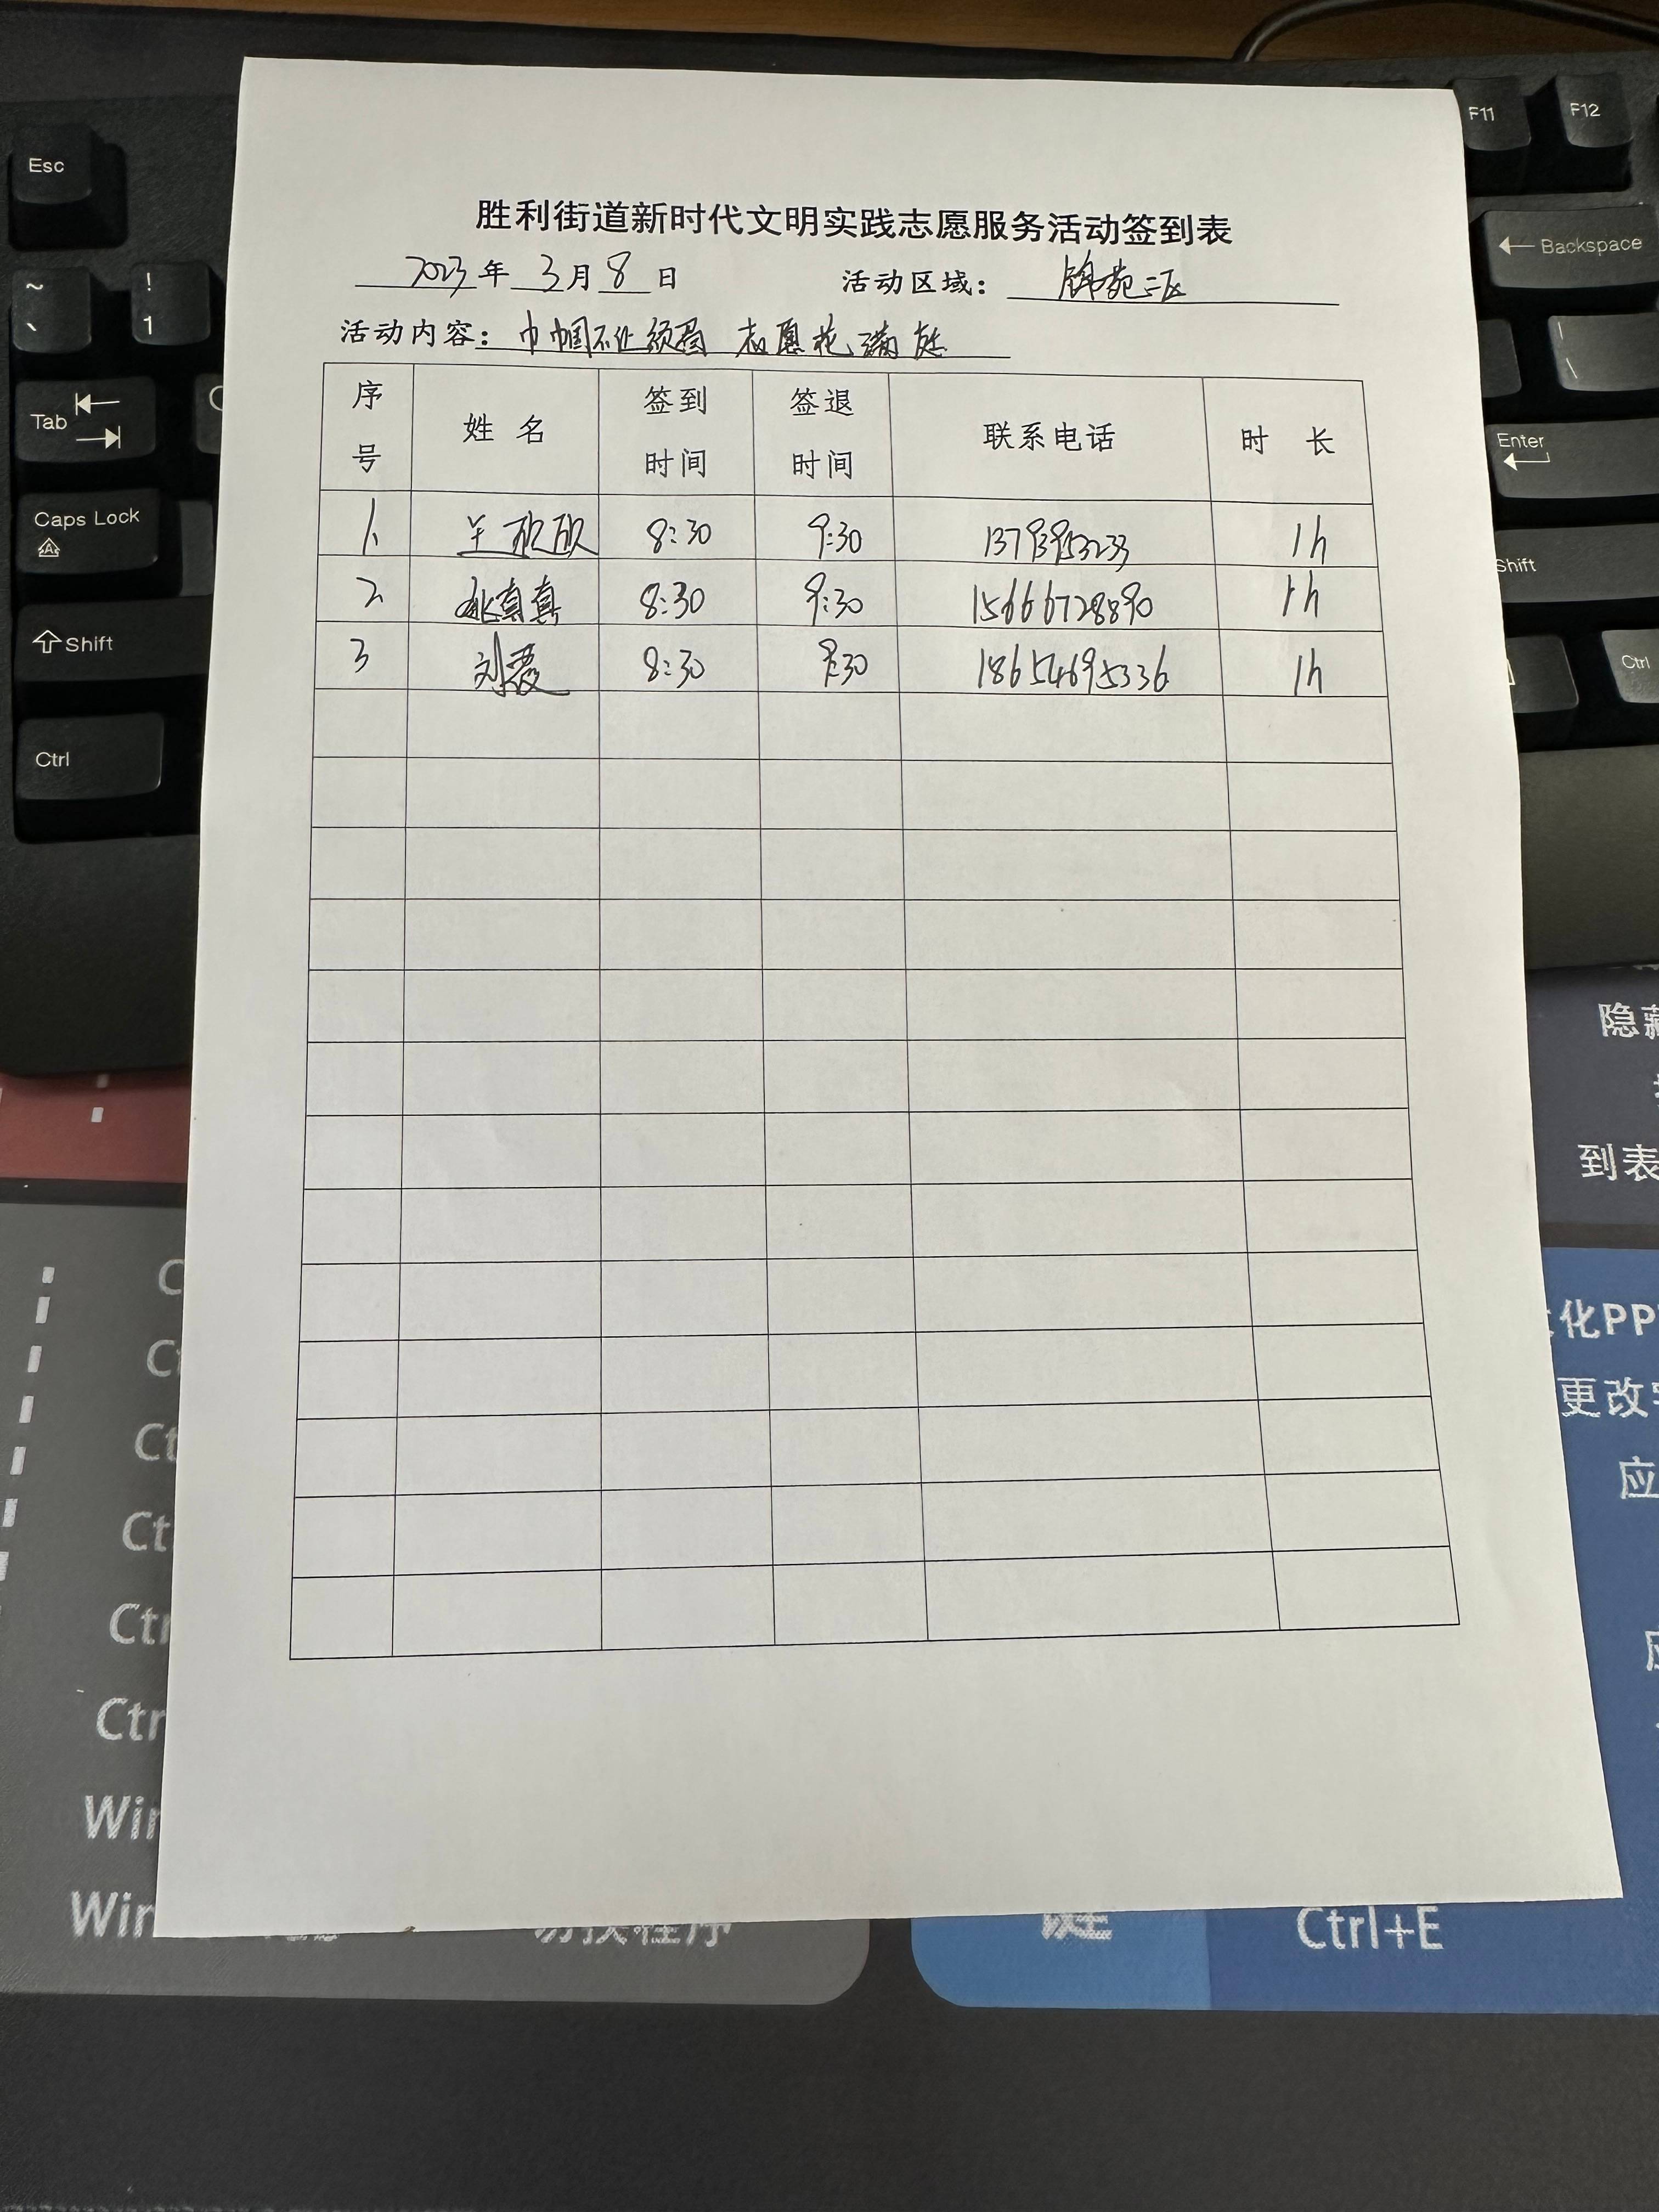 胜利街道新时代文明实践志愿服务活动签到表
2023年 3月 8 日 活动区域: 锦苑二区
活动内容: 巾帼不让须眉 志愿花满庭
序号 姓 名 签到时间 签退时间 联系电话 时 长
1. 8:30 9:30 13793953233 1h
2 姚真真 8:30 9:30 15666728890 1h
3 刘霞 8:30 9:30 18654695336 1h
Esc
~ ! 
、 1
Tab
Caps Lock
Shift
Ctrl
F11 F12
Backspace
| \
Enter
Shift
Ctrl
到表
化PP
更改
应
Ctr
Win
Win
切换程序
Ctrl+E